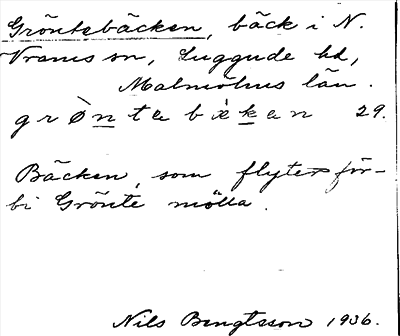 Gröntebäcken, bäck i N.
Vrams sn, Luggude hd,
Malmöhus län.
grø̀nta bækan 29.
Bäcken, som flyter för-
bi Grönte mölla.
Nils Bengtsson 1936.